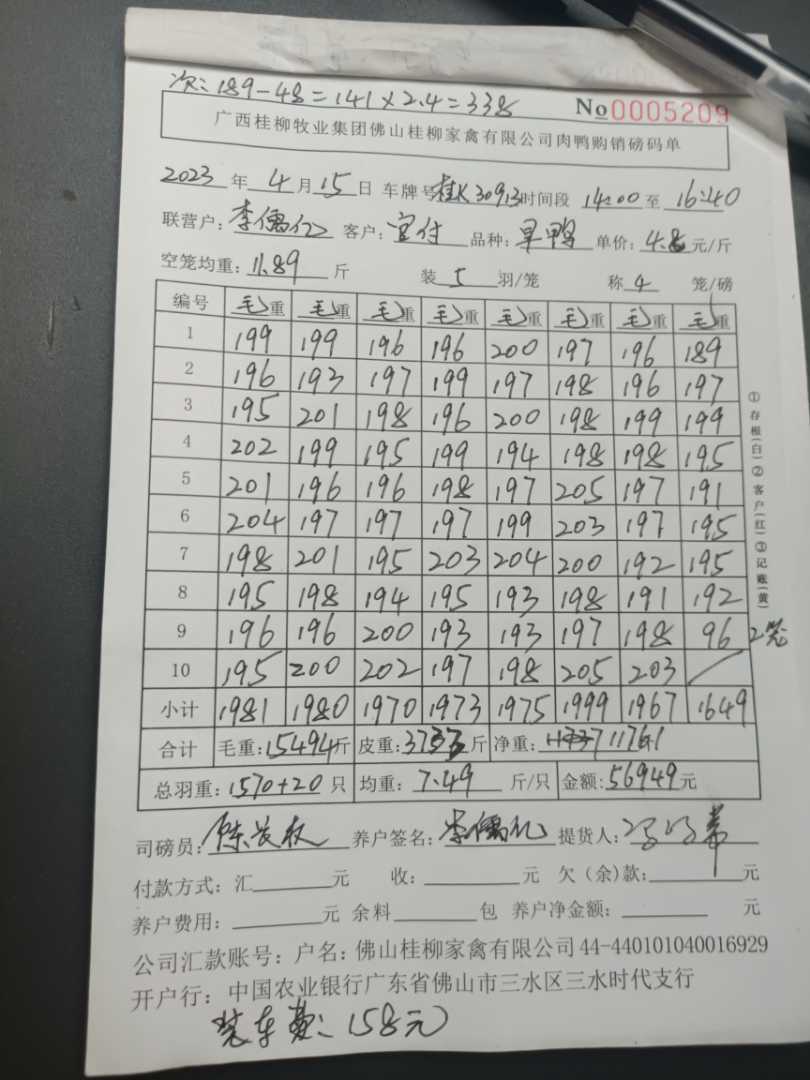 次: 189-48=141×2.4=338
No 0005209
广西桂柳牧业集团佛山桂柳家禽有限公司肉鸭购销磅码单
2023 年 4 月 15 日 车牌号 桂K30913 时间段 14:00 至 16:40
联营户: 李儒亿 客户: 宝付 品种: 旱鸭 单价: 4.8 元/斤
空笼均重: 11.89 斤 装 5 羽/笼 称 4 笼/磅
编号 毛重 毛重 毛重 毛重 毛重 毛重 毛重 毛重
1 199 199 196 196 200 197 196 189
2 196 193 197 199 197 198 196 197
3 195 201 198 196 200 198 199 199
4 202 199 195 199 194 198 198 195
5 201 196 196 198 197 205 197 191
6 204 197 197 197 199 203 197 195
7 198 201 195 203 204 200 192 195
8 195 198 194 195 193 198 191 192
9 196 196 200 193 193 197 198 96 2笼
10 195 200 202 197 198 205 203
小计 1981 1980 1970 1973 1975 1999 1967 1649
合计 毛重: 15494 斤 皮重: 3733 斤 净重: 11761
总羽重: 1570+20 只 均重: 7.49 斤/只 金额: 56949 元
司磅员: 养户签名: 李儒亿 提货人:
付款方式: 汇 元 收: 元 欠(余)款: 元
养户费用: 元 余料 包 养户净金额: 元
公司汇款账号: 户名: 佛山桂柳家禽有限公司 44-440101040016929
开户行: 中国农业银行广东省佛山市三水区三水时代支行
装车费: 158元
①存根(白)②客户(红)③记账(黄)